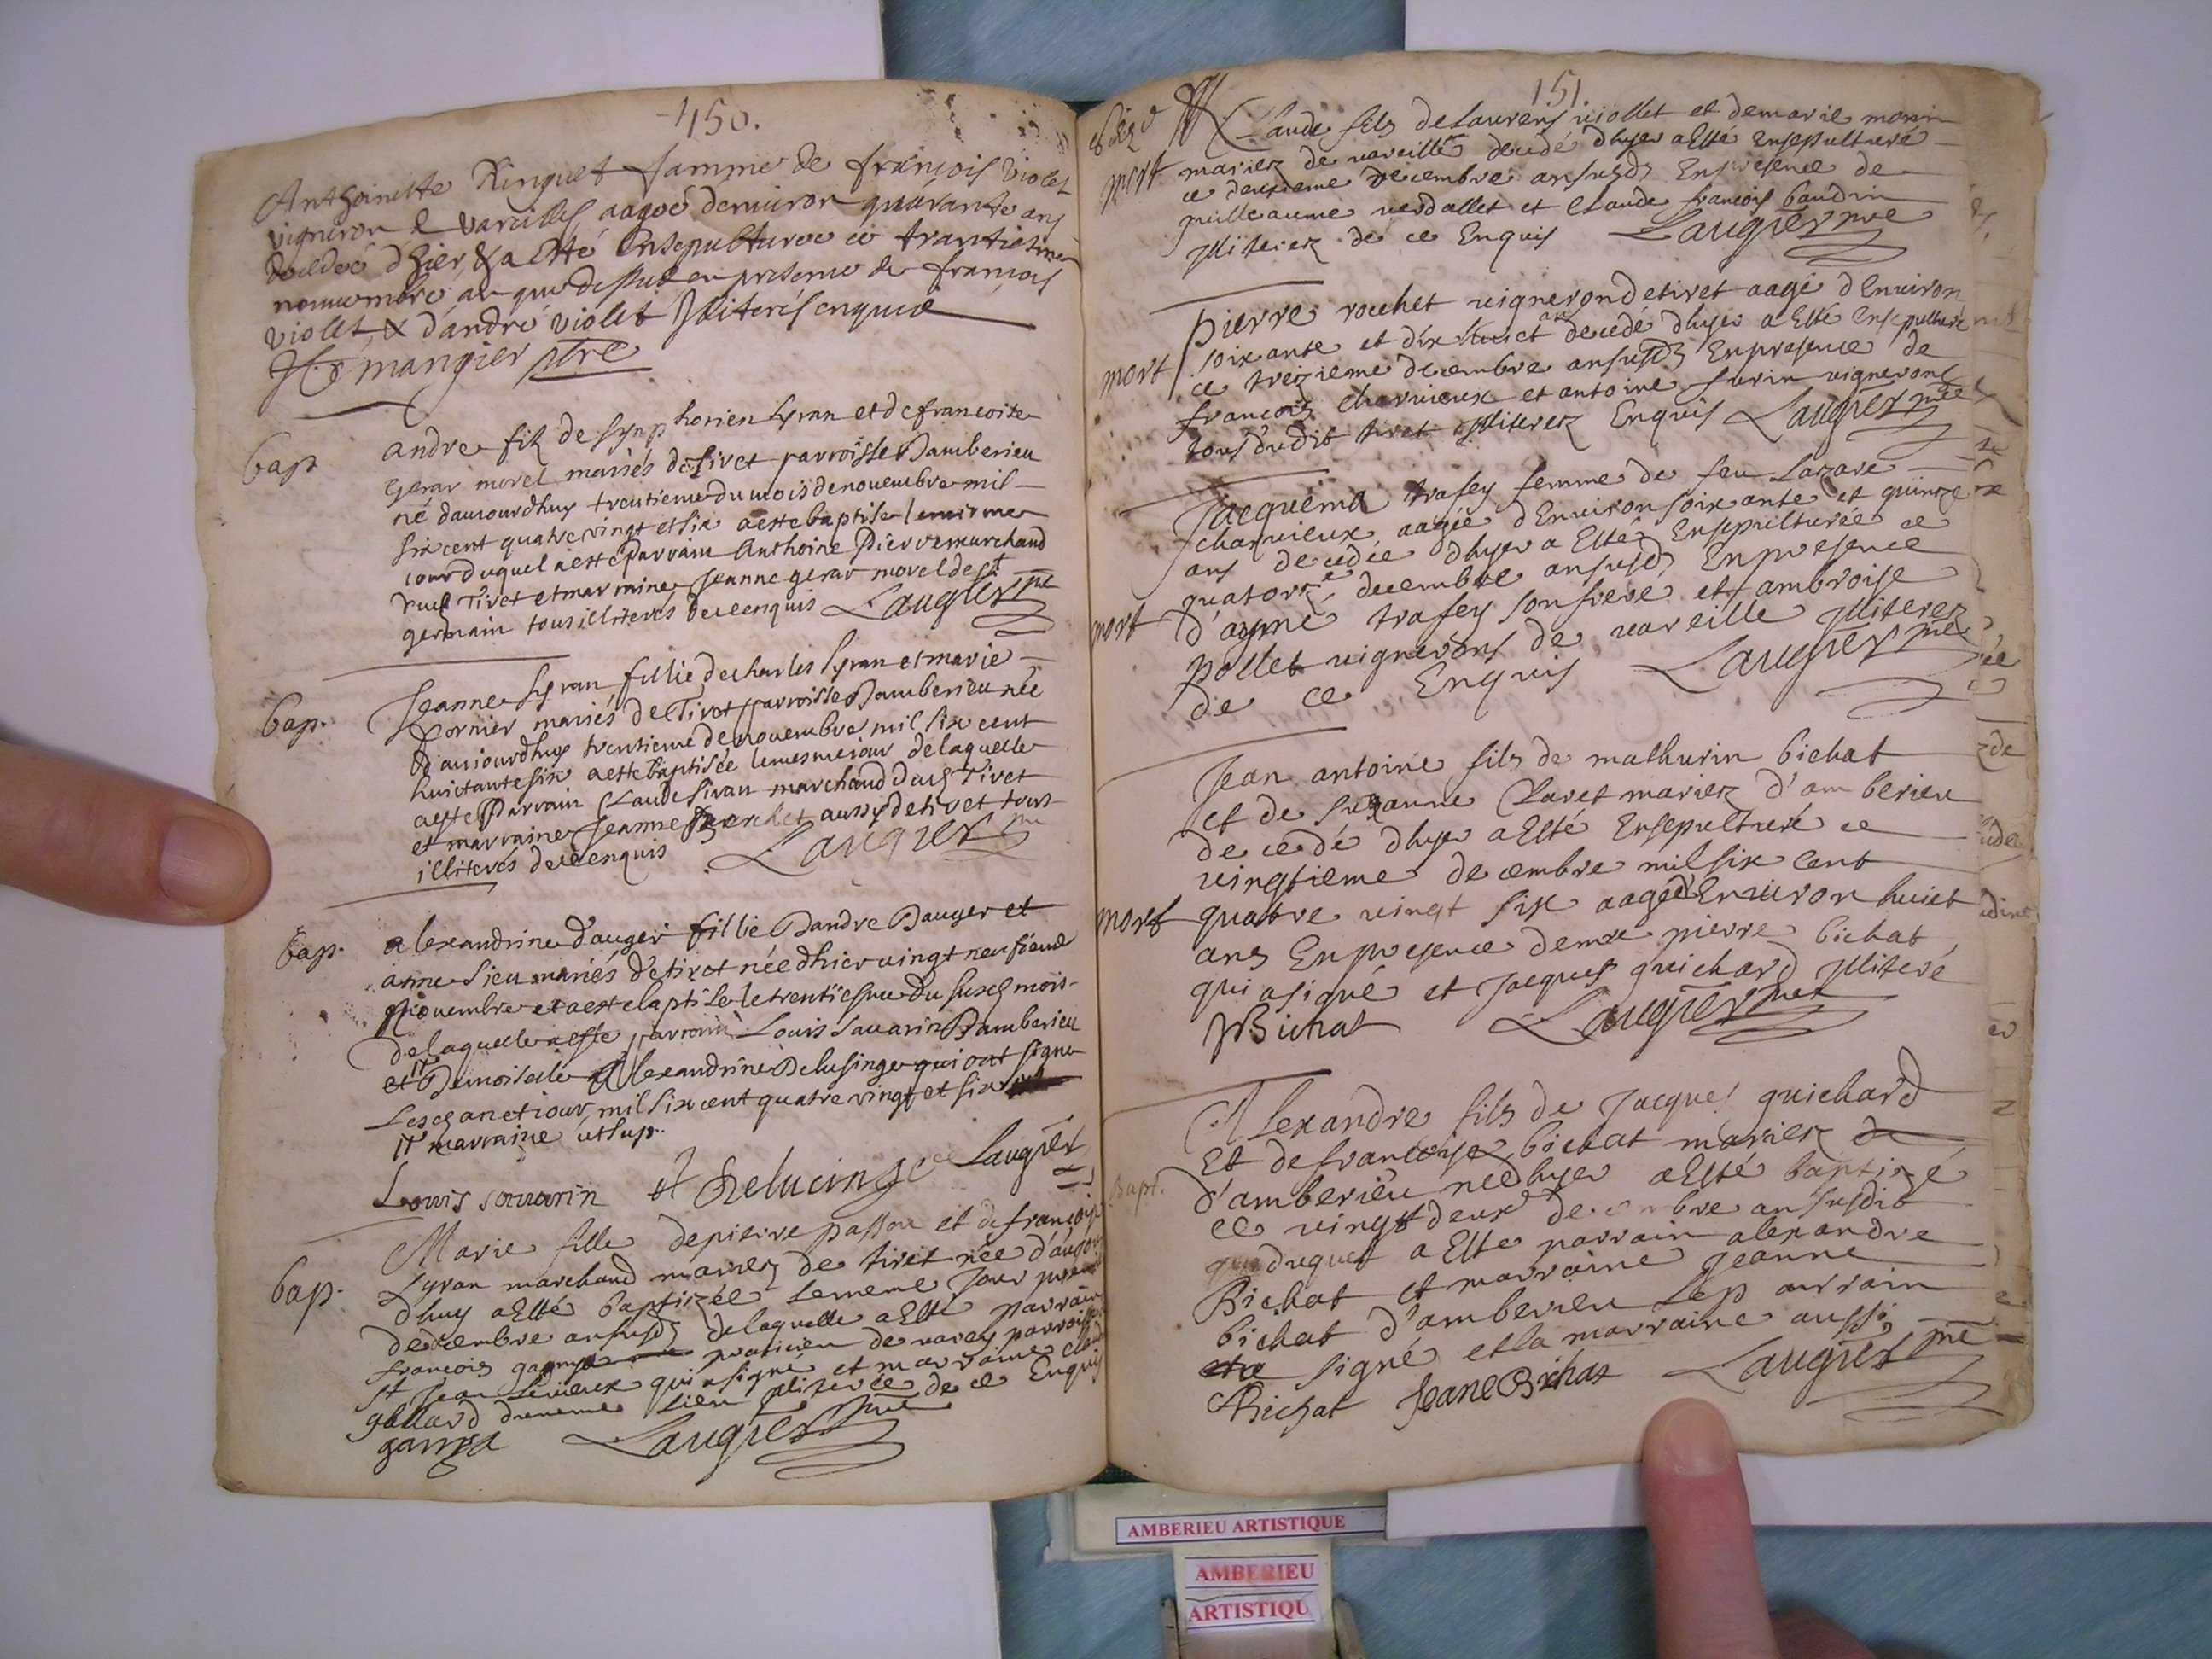 150.
Anthoinette Ringuet famme de françois violet
vigneron de vareilles aagée d'enuiron quarante ans
decedée d'hier & a esté ensepulturée ce trantiesme
nouuembre an que dessus en presence de françois
violet & d'andré violet Illiterés enquis
mangier ptre
bap
andre filz de synphorien syran et de francoise
gerar morel mariés de tiret parroisse Damberieu
né daujourdhuy trentieme du mois de nouembre mil
six cent quatre vingt et six a este baptise le mirme
iour duquel a este parrain Anthoine Pierre marchand
dud Tiret et marraine Jeanne gerar morel de st
germain tous illiterés de ce enquis Laugier
bap.
Jeanne syran fillie de charles syran et marie
Cornier mariés de Tiret parroisse Damberieu née
d'auiourdhuy trentieme de nouembre mil six cent
huictante six a este baptisée le mesme iour de laquelle
a este Parrain Claude sivan marchand dud Tiret
et marraine Jeanne aussy de tiret tous
illiterés de ce enquis Laugier
bap.
alexandrine d'auger fillie Dandre Dauger et
anne sieu mariés de tiret née dhier vingt neufieme
Nouembre et a este baptise le trentiesme du susd mois
de laquelle a este parrain Louis Sauarin Damberieu
et Demoiselle Alexandrine Delusinge qui ont signe
Lesd an et iour mil six cent quatre vingt et six
marraine ut sup.
Louis sauarin A Delucinge Laugier
bap.
Marie fille de pierre passou et de françoise
syran marchand mariez de tiret née d'aujour
d'huy a Esté baptizée le meme Jour
decembre an susd de laquelle a Esté parrain
françois praticien de varey parroisse
st Jean Levieux qui a signé et marraine
gallard du meme Lieu Illiterée de ce Enquis
Laugier
151.
mort
Claude fils de Laurens viollet et de marie morin
mariez de vareille decedé d'hyer a Esté Ensepulturé
ce deuxieme decembre an susd En presence de
guilleaume verdallet et Claude françois baudin
Illiterez de ce Enquis Laugier
mort
pierre rochet vigneron de tiret aagé d'Enuiron
soixante et dix huict ans decedé d'hyer a Esté Ensepulturé
ce treizieme decembre an susd En presence de
françois charuieux et antoine vignerons
tous dudit tiret Illiterez Enquis Laugier
mort
Jacquema trafey femme de feu Lazare
charuieux aagée d'Enuiron soixante et quinze
ans decedée d'hyer a Esté Ensepulturée ce
quatorze decembre an susd En presence
d'aymé trafey son frere et ambroise
pollet vignerons de vareille Illiterez
de ce Enquis Laugier
mort
Jean antoine fils de mathurin bichat
et de suzanne Claret mariez d'amberieu
decedé d'hyer a Esté Ensepulturé ce
vingtieme decembre mil six Cent
quatre vingt six aagé d'Enuiron huict
ans En presence de pierre bichat
qui a signé et Jacques guichard Illiteré
Bichat Laugier
Bapt.
Alexandre fils de Jacques guichard
Et de françoise bichat mariez de
d'amberieu né d'hyer a Esté baptizé
ce vingt deux decembre an susdit
duquel a Esté parrain alexandre
Bichat et marraine Jeanne
bichat d'amberieu Le parrain
signé et la marraine aussi
Bichat Jeane Bichat Laugier
AMBERIEU ARTISTIQUE
AMBERIEU
ARTISTIQU